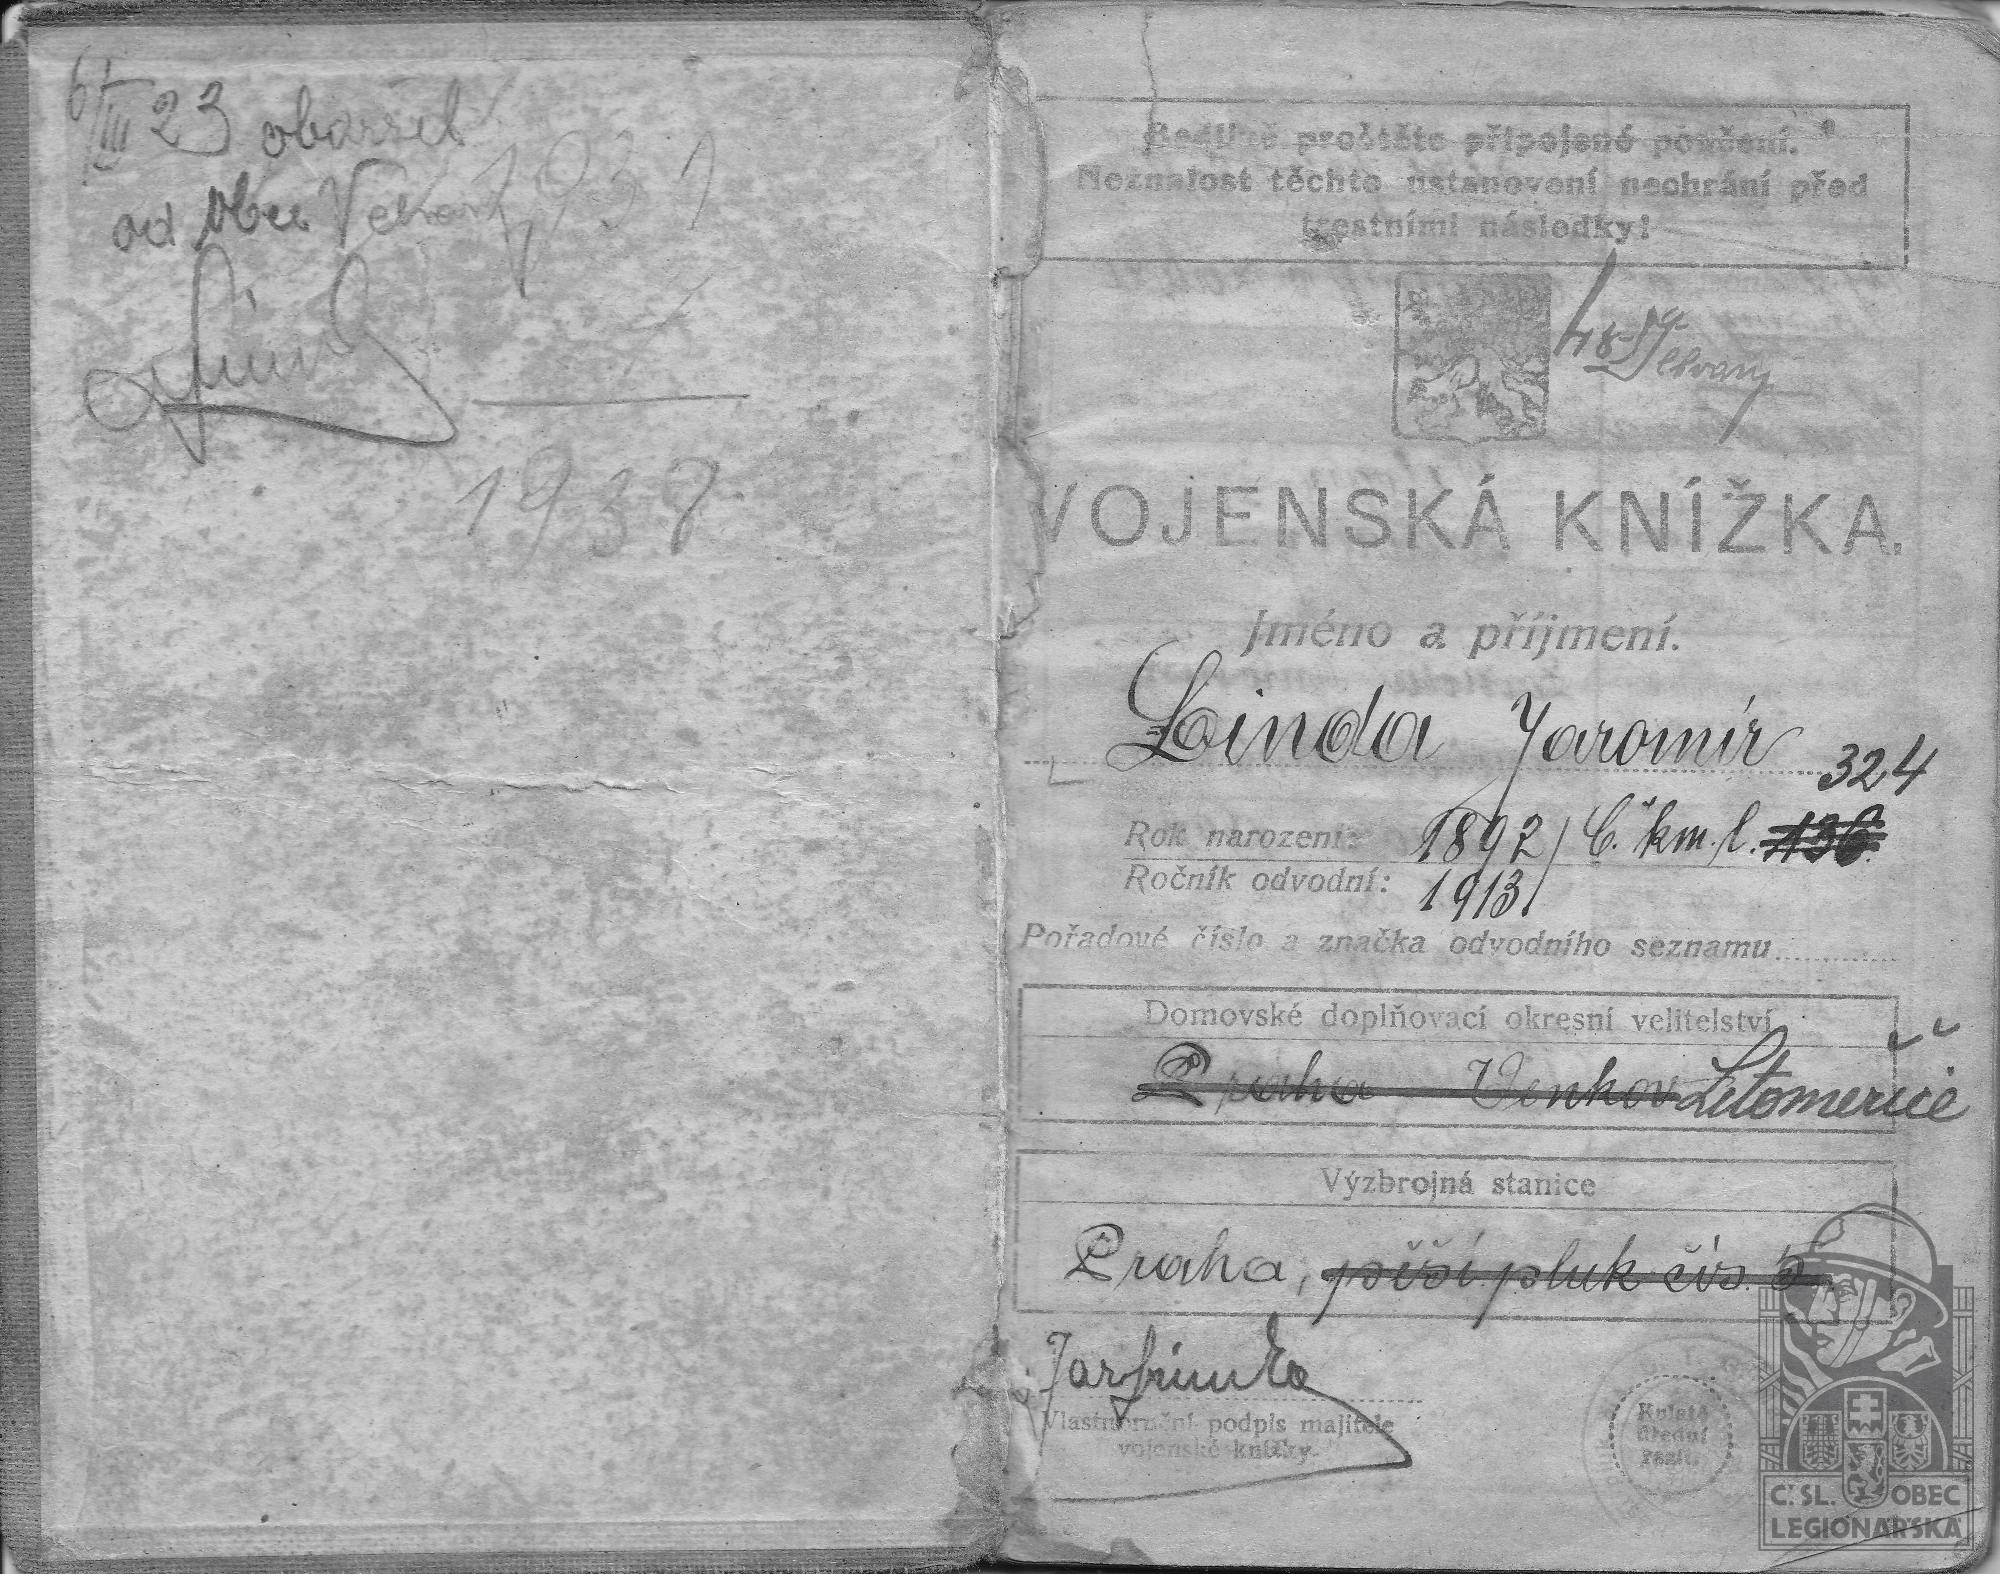 6/III 23 obdržel
od obce
1931
1937
Bedlivě pročtěte připojené poučení.
Neznalost těchto ustanovení nechrání před
trestními následky!
VOJENSKÁ KNÍŽKA.
Jméno a příjmení.
Linda Jaromír 324
Rok narození: 1892 / Č. km. l. 136.
Ročník odvodní: 1913
Pořadové číslo a značka odvodního seznamu
Domovské doplňovací okresní velitelství
Praha - Venkov Litoměřice
Výzbrojná stanice
Praha, pěší pluk čís. 5
Jar Linda
Vlastnoruční podpis majitele
vojenské knížky.
Kulaté
úřední
razít.
Č. SL. OBEC
LEGIONÁŘSKÁ